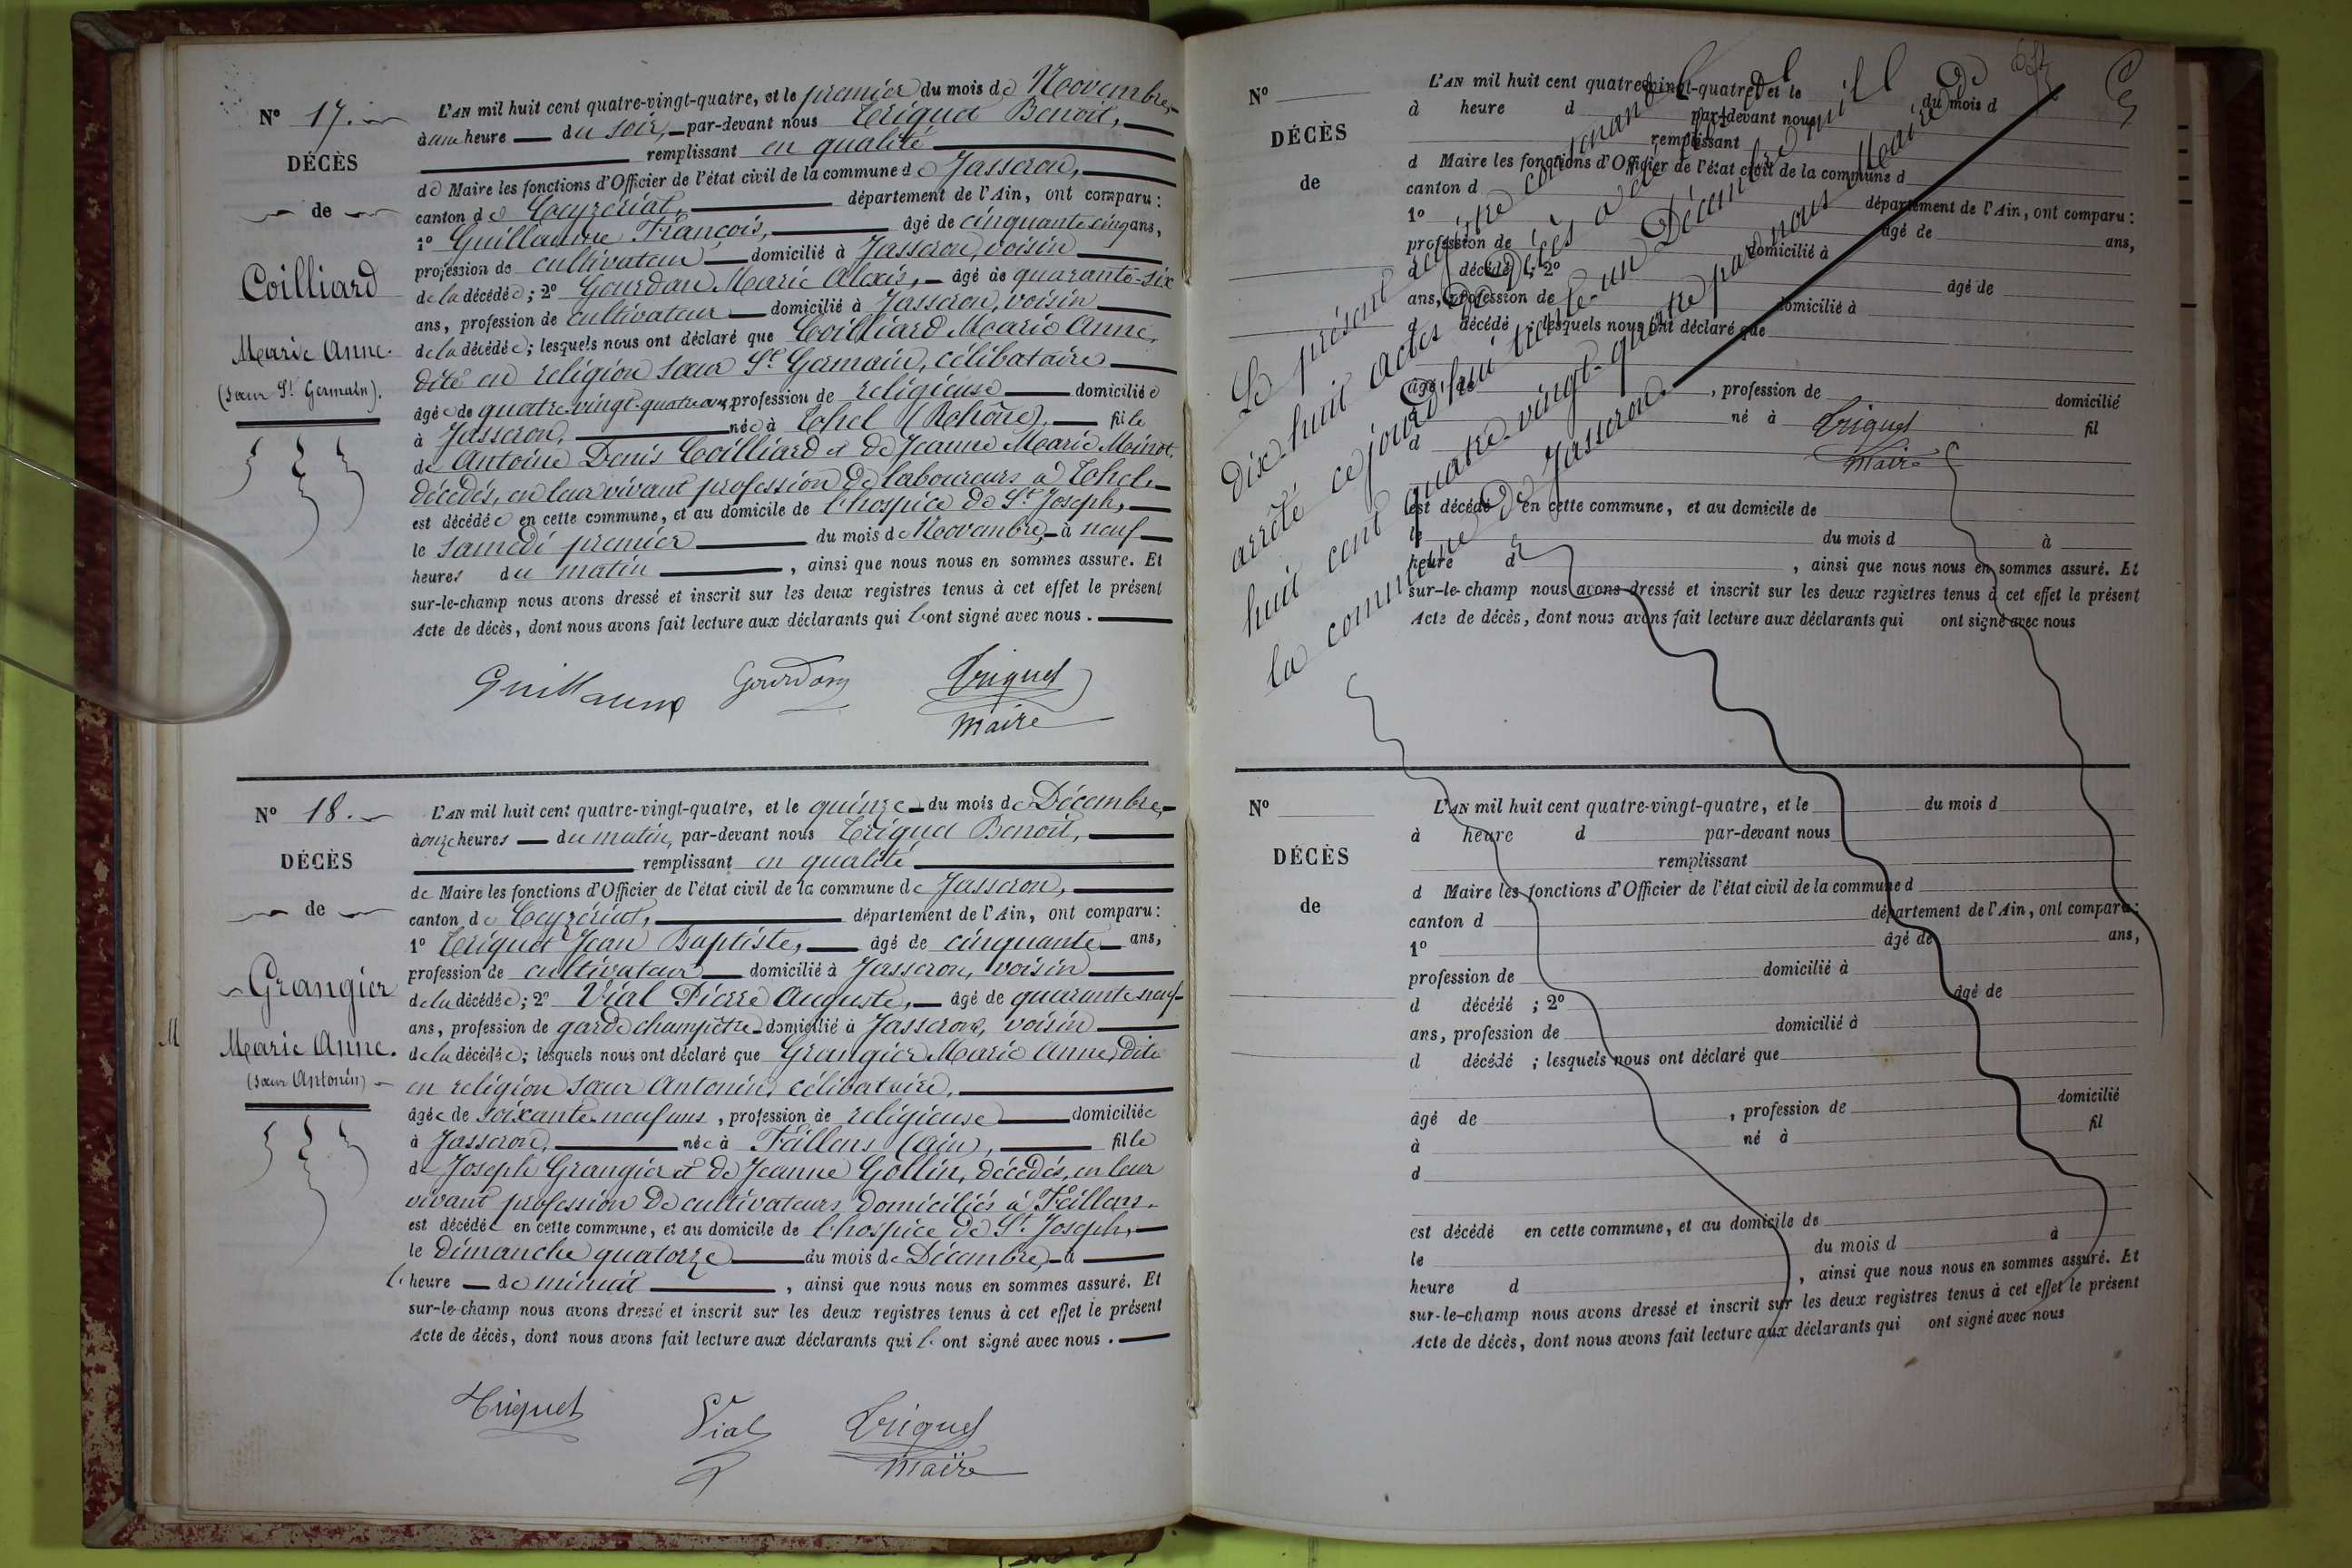 N° 17.
DÉCÈS
de
Coilliard
Marie Anne.
(Sœur St Germain).
L'AN mil huit cent quatre-vingt-quatre, et le premier du mois de Novembre,
à une heure du soir, par-devant nous Triquet Benoit,
remplissant en qualité
de Maire les fonctions d'Officier de l'état civil de la commune de Jasseron,
canton de Ceyzériat, département de l'Ain, ont comparu :
1° Guillaume François, âgé de cinquante cinq ans,
profession de cultivateur domicilié à Jasseron, voisin
de la décédée ; 2° Gourdan Marie Alexis, âgé de quarante-six
ans, profession de cultivateur domicilié à Jasseron, voisin
de la décédée ; lesquels nous ont déclaré que Coilliard Marie Anne,
dite en religion sœur St Germain, célibataire
âgée de quatre-vingt-quatre ans, profession de religieuse domiciliée
à Jasseron, née à Thel (Rhône), fille
de Antoine Denis Coilliard et de Jeanne Marie Moinot,
décédés, en leur vivant profession de laboureurs à Thel
est décédée en cette commune, et au domicile de l'hospice de St Joseph,
le samedi premier du mois de Novembre, à neuf
heures du matin, ainsi que nous nous en sommes assuré. Et
sur-le-champ nous avons dressé et inscrit sur les deux registres tenus à cet effet le présent
Acte de décès, dont nous avons fait lecture aux déclarants qui l'ont signé avec nous.
Guillaume Gourdan Triquet
Maire
N° 18.
DÉCÈS
de
Grangier
Marie Anne.
(Sœur Antonin)
M
L'AN mil huit cent quatre-vingt-quatre, et le quinze du mois de Décembre,
à onze heures du matin, par-devant nous Triquet Benoit,
remplissant en qualité
de Maire les fonctions d'Officier de l'état civil de la commune de Jasseron,
canton de Ceyzériat, département de l'Ain, ont comparu :
1° Triquet Jean Baptiste, âgé de cinquante ans,
profession de cultivateur domicilié à Jasseron, voisin
de la décédée ; 2° Vial Pierre Auguste, âgé de quarante neuf
ans, profession de garde champêtre domicilié à Jasseron, voisin
de la décédée ; lesquels nous ont déclaré que Grangier Marie Anne, dite
en religion sœur Antonin, célibataire,
âgée de soixante-neuf ans, profession de religieuse domiciliée
à Jasseron, née à Feillens (Ain), fille
de Joseph Grangier et de Jeanne Gollin, décédés, en leur
vivant profession de cultivateurs domiciliés à Feillens.
est décédée en cette commune, et au domicile de l'hospice de St Joseph,
le dimanche quatorze du mois de Décembre, à
l'heure de minuit, ainsi que nous nous en sommes assuré. Et
sur-le-champ nous avons dressé et inscrit sur les deux registres tenus à cet effet le présent
Acte de décès, dont nous avons fait lecture aux déclarants qui l'ont signé avec nous.
Triquet Vial Triquet
Maire
Le présent registre contenant
dix-huit actes de Décès a été
arrêté ce jourd'hui trente-un Décembre mil
huit cent quatre-vingt-quatre par nous Maire de
la commune de Jasseron.
Triquet
Maire
N°
DÉCÈS
de
L'AN mil huit cent quatre-vingt-quatre, et le du mois d
à heure d par-devant nous
remplissant
d Maire les fonctions d'Officier de l'état civil de la commune d
canton d département de l'Ain, ont comparu :
1° âgé de ans,
profession de domicilié à
d décédé ; 2° âgé de
ans, profession de domicilié à
d décédé ; lesquels nous ont déclaré que
âgé de , profession de domicilié
à né à fil
d
est décédé en cette commune, et au domicile de
le du mois d à
heure d , ainsi que nous nous en sommes assuré. Et
sur-le-champ nous avons dressé et inscrit sur les deux registres tenus à cet effet le présent
Acte de décès, dont nous avons fait lecture aux déclarants qui ont signé avec nous
N°
DÉCÈS
de
L'AN mil huit cent quatre-vingt-quatre, et le du mois d
à heure d par-devant nous
remplissant
d Maire les fonctions d'Officier de l'état civil de la commune d
canton d département de l'Ain, ont comparu :
1° âgé de ans,
profession de domicilié à
d décédé ; 2° âgé de
ans, profession de domicilié à
d décédé ; lesquels nous ont déclaré que
âgé de , profession de domicilié
à né à fil
d
est décédé en cette commune, et au domicile de
le du mois d à
heure d , ainsi que nous nous en sommes assuré. Et
sur-le-champ nous avons dressé et inscrit sur les deux registres tenus à cet effet le présent
Acte de décès, dont nous avons fait lecture aux déclarants qui ont signé avec nous